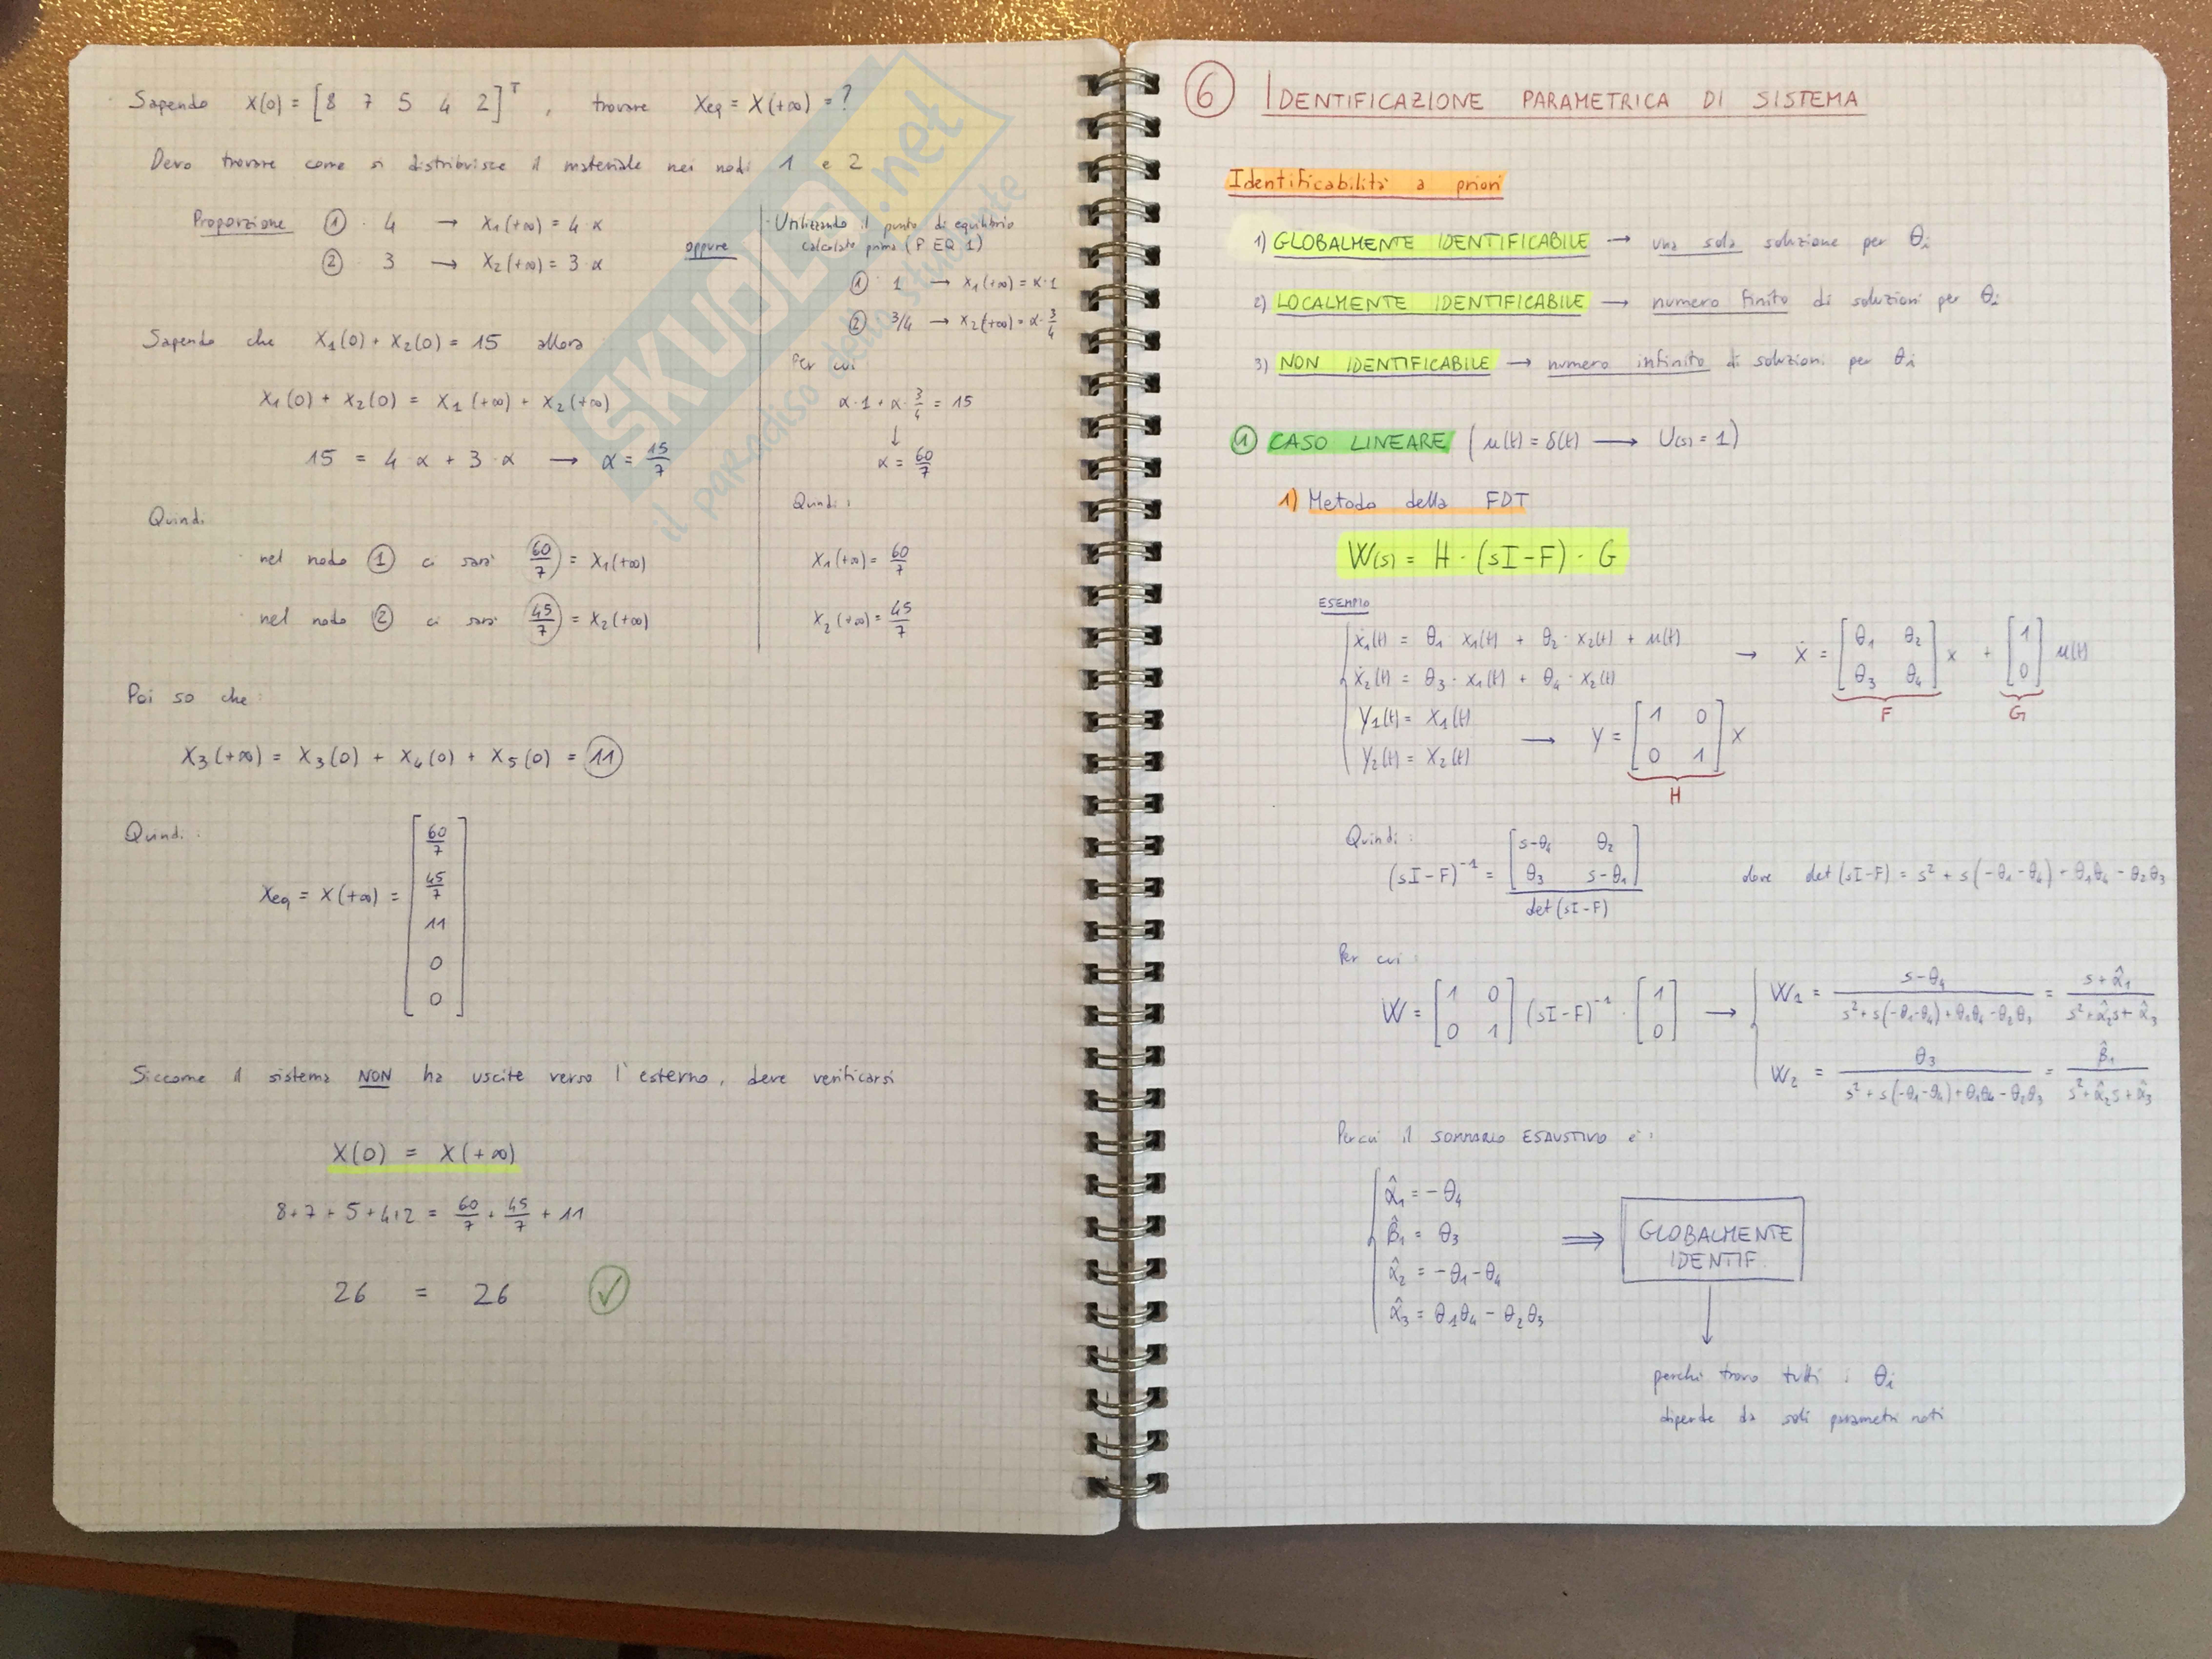 Sapendo X(0) = [8 7 5 4 2]ᵀ , trovare Xeq = X(+∞) = ?
Devo trovare come si distribuisce il materiale nei nodi 1 e 2
Proporzione ① · 4 → X₁(+∞) = 4·α
② · 3 → X₂(+∞) = 3·α
oppure
Sapendo che X₁(0) + X₂(0) = 15 allora
X₁(0) + X₂(0) = X₁(+∞) + X₂(+∞)
15 = 4·α + 3·α → α = 15/7
Quindi
nel nodo ① ci sarà 60/7 = X₁(+∞)
nel nodo ② ci sarà 45/7 = X₂(+∞)
Utilizzando il punto di equilibrio
calcolato prima (P. EQ 1)
① 1 → X₁(+∞) = α·1
② 3/4 → X₂(+∞) = α·3/4
Per cui
α·1 + α·3/4 = 15
↓
α = 60/7
Quindi:
X₁(+∞) = 60/7
X₂(+∞) = 45/7
Poi so che:
X₃(+∞) = X₃(0) + X₄(0) + X₅(0) = 11
Quindi:
Xeq = X(+∞) = [60/7 45/7 11 0 0]
Siccome il sistema NON ha uscite verso l'esterno, deve verificarsi
X(0) = X(+∞)
8+7+5+4+2 = 60/7 + 45/7 + 11
26 = 26 ✓
SKUOLA.net
il paradiso dello studente
⑥ IDENTIFICAZIONE PARAMETRICA DI SISTEMA
Identificabilità a priori
1) GLOBALMENTE IDENTIFICABILE → una sola soluzione per θi
2) LOCALMENTE IDENTIFICABILE → numero finito di soluzioni per θi
3) NON IDENTIFICABILE → numero infinito di soluzioni per θi
① CASO LINEARE (u(t) = δ(t) → U(s) = 1)
1) Metodo della FDT
W(s) = H · (sI-F) · G
ESEMPIO
ẋ₁(t) = θ₁ · x₁(t) + θ₂ · x₂(t) + u(t)
ẋ₂(t) = θ₃ · x₁(t) + θ₄ · x₂(t)
→ ẋ = [θ₁ θ₂ θ₃ θ₄] x + [1 0] u(t)
F G
Y₁(t) = X₁(t)
Y₂(t) = X₂(t)
→ Y = [1 0 0 1] X
H
Quindi:
(sI-F)⁻¹ = [s-θ₄ θ₂ θ₃ s-θ₁] / det(sI-F)
dove det(sI-F) = s² + s(-θ₁-θ₄) + θ₁θ₄ - θ₂θ₃
Per cui:
W = [1 0 0 1] (sI-F)⁻¹ · [1 0] →
W₁ = (s-θ₄) / (s²+s(-θ₁-θ₄)+θ₁θ₄-θ₂θ₃) = (s+α̂₁) / (s²+α̂₂s+α̂₃)
W₂ = θ₃ / (s²+s(-θ₁-θ₄)+θ₁θ₄-θ₂θ₃) = β̂₁ / (s²+α̂₂s+α̂₃)
Percui il SOMMARIO ESAUSTIVO è:
α̂₁ = -θ₄
β̂₁ = θ₃
α̂₂ = -θ₁-θ₄
α̂₃ = θ₁θ₄ - θ₂θ₃
⇒ GLOBALMENTE
IDENTIF.
↓
perchè trovo tutti i θi
dipende da soli parametri noti